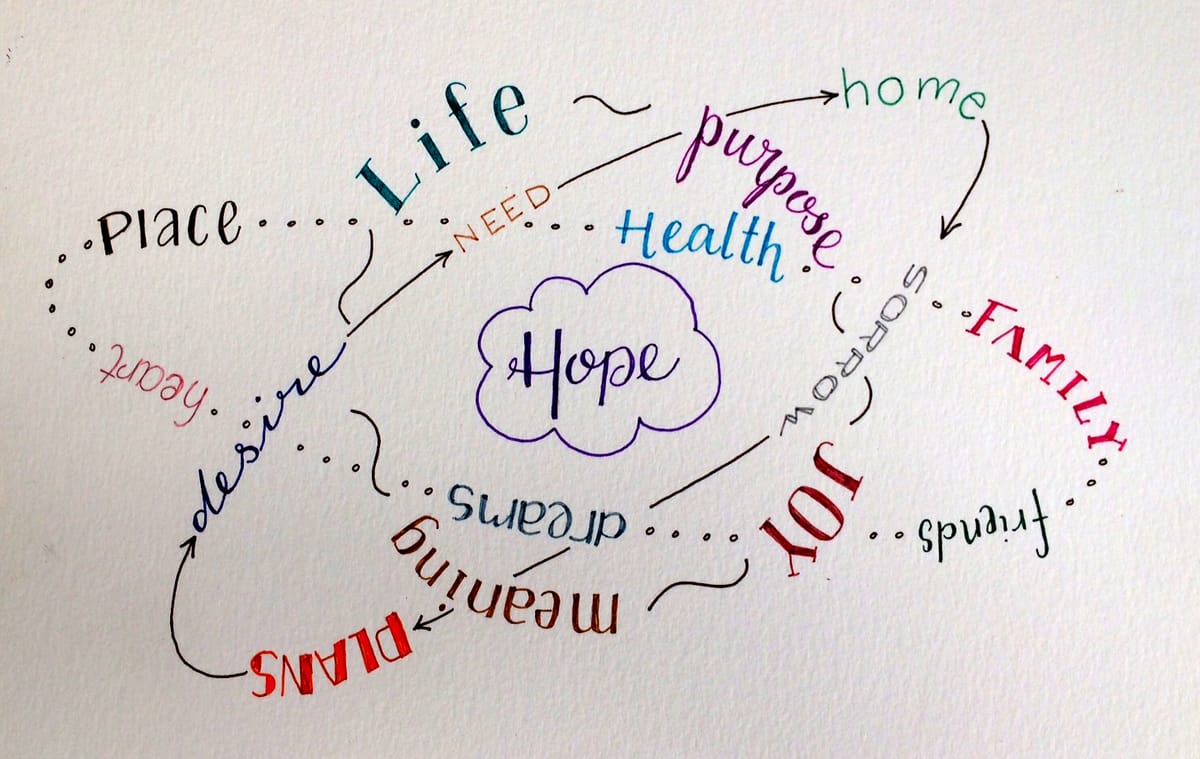 Life
home
purpose
Place
NEED
Health
SORROW
FAMILY
Hope
heart
desire
JOY
dreams
friends
meaning
PLANS